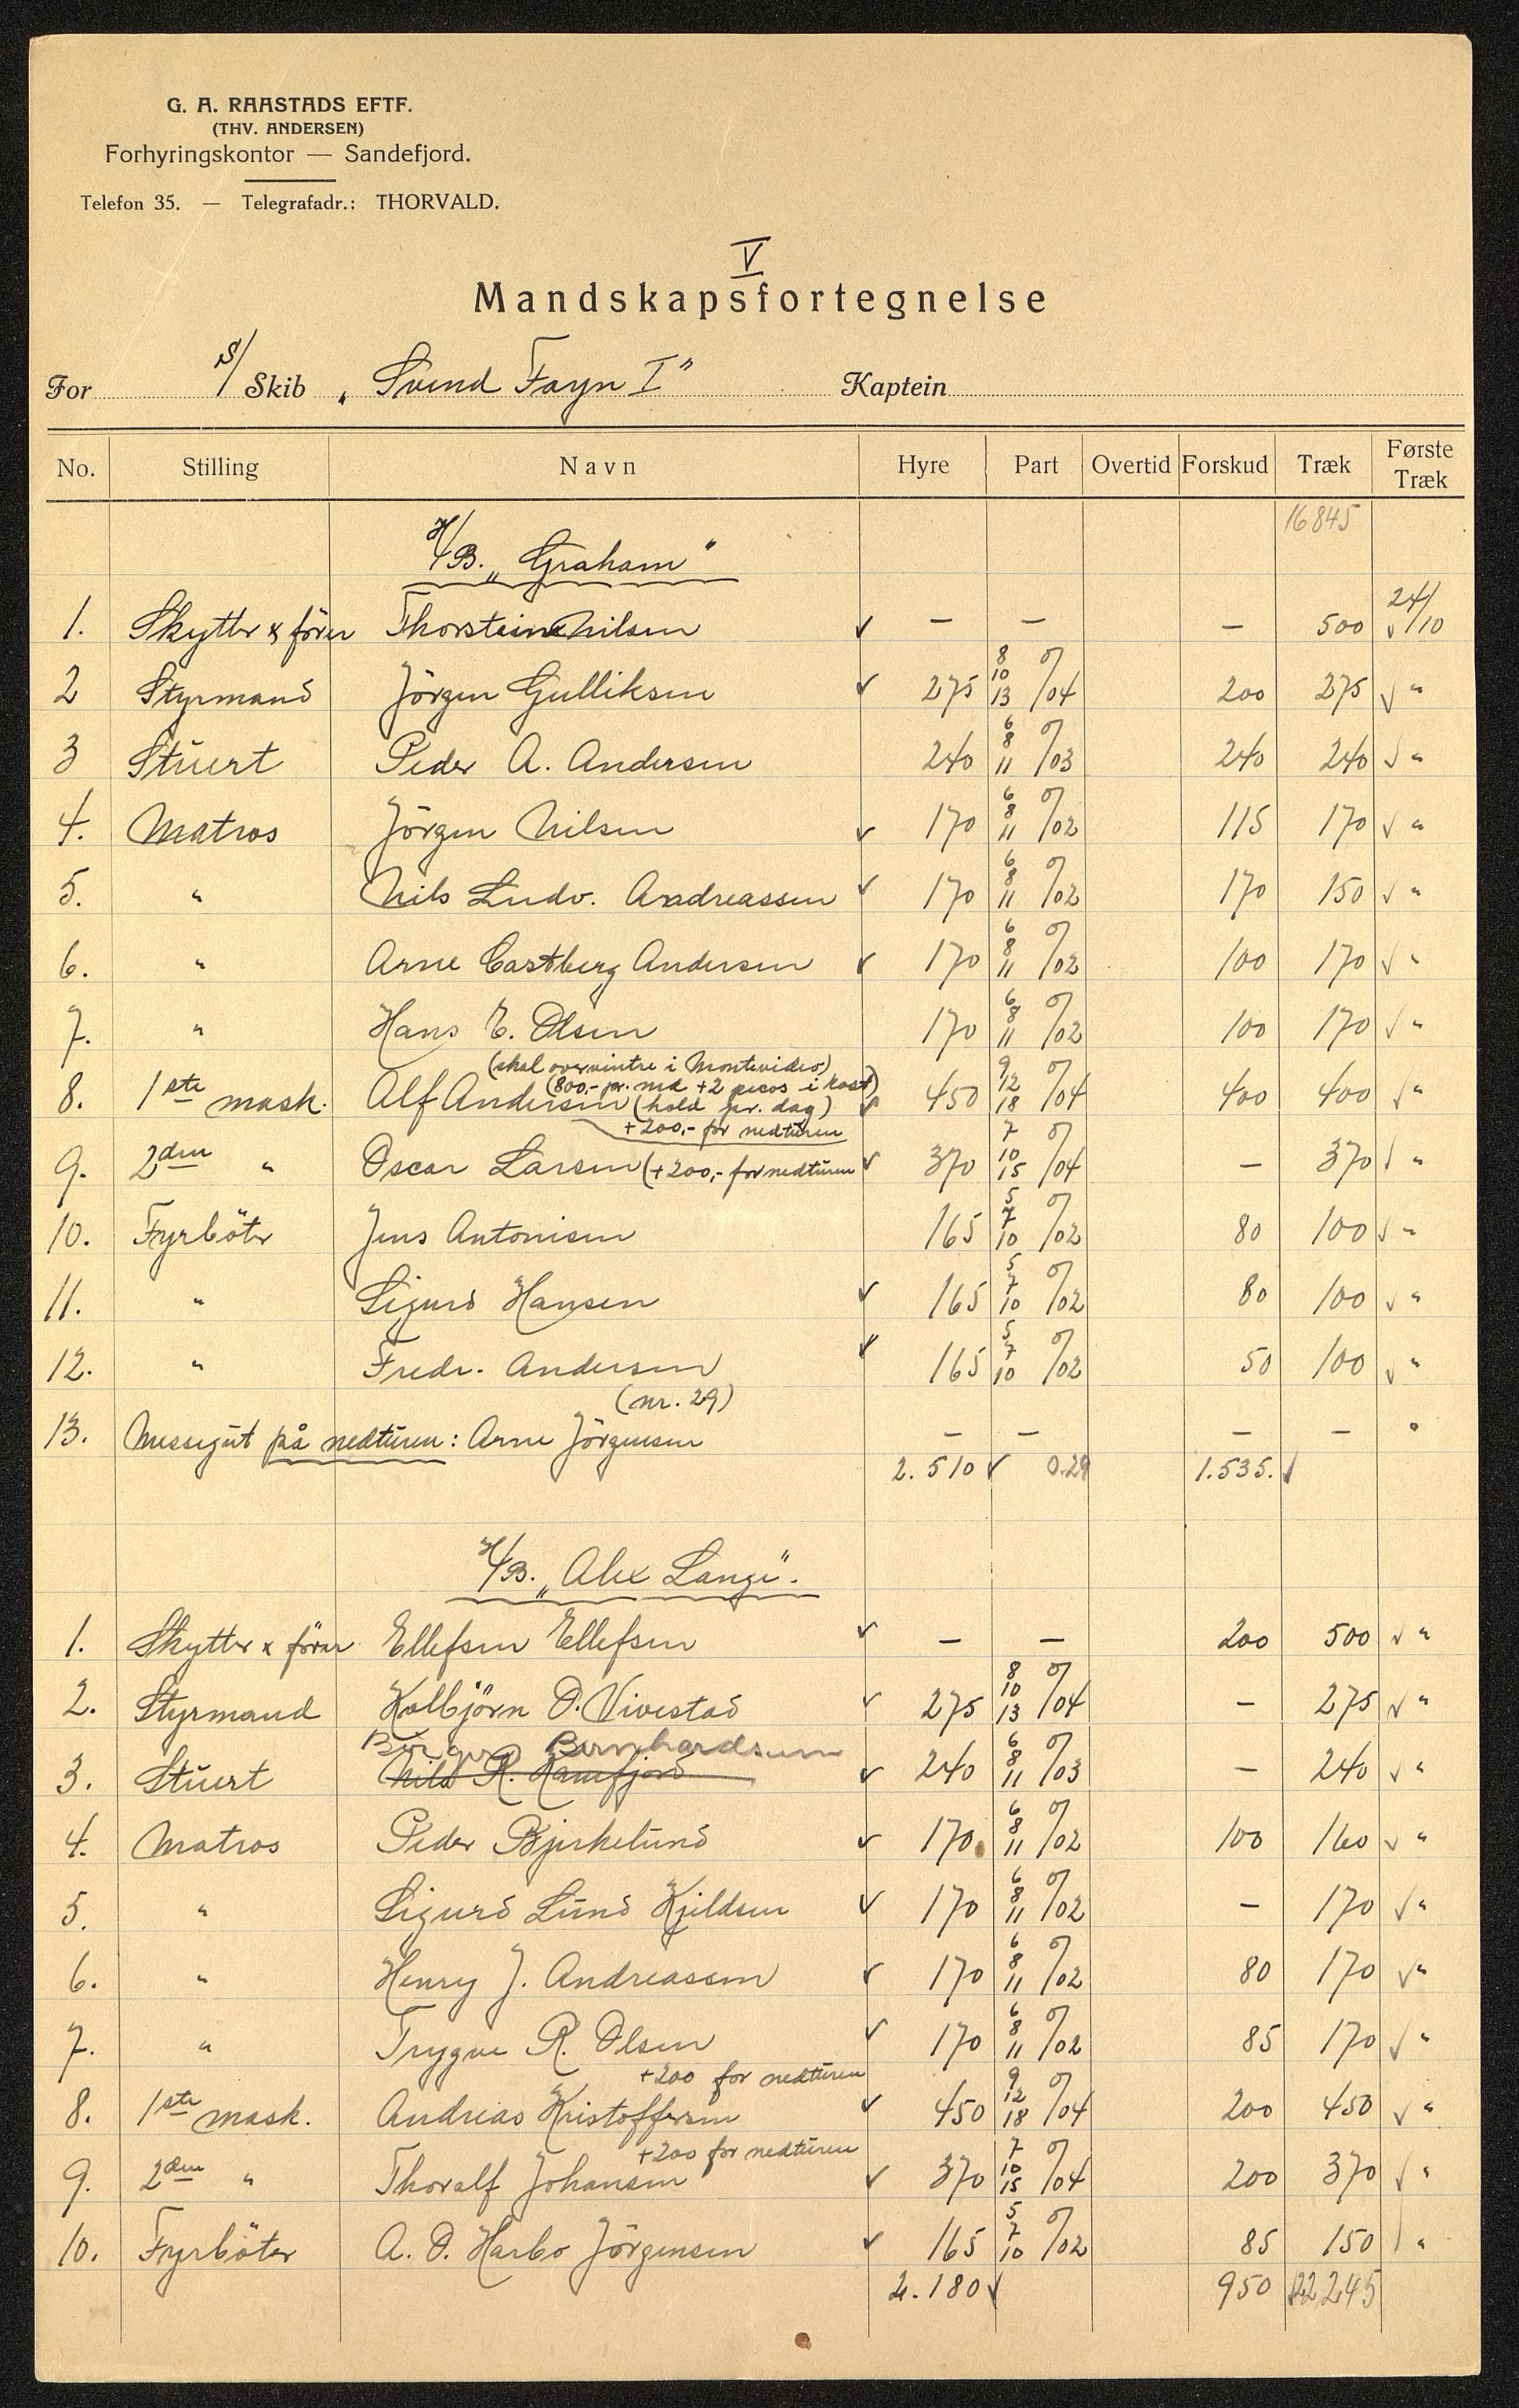 G. A. RAASTADS EFTF.
(THV. ANDERSEN)
Forhyringskontor — Sandefjord.
Telefon 35. — Telegrafadr.: THORVALD.
V
Mandskapsfortegnelse
For S/ Skib „Svend Foyn I” Kaptein
No. Stilling Navn Hyre Part Overtid Forskud Træk Første Træk
16845
H/B. „Graham”
1. Skytter & förer Thorstein Nilsen ✓ — — — 500 ✓ 24/10
2 Styrmand Jörgen Gulliksen ✓ 275 8 10 13 ø/04 200 275 ✓ "
3 Stuert Peder A. Andersen 240 6 8 11 ø/03 240 240 ✓ "
4. Matros Jörgen Nilsen ✓ 170 6 8 11 ø/02 115 170 ✓ "
5. " Nils Ludv. Andreassen ✓ 170 6 8 11 ø/02 170 150 ✓ "
6. " Arne Castberg Andersen ✓ 170 6 8 11 ø/02 100 170 ✓ "
7. " Hans E. Olsen 170 6 8 11 ø/02 100 170 ✓ "
(skal overvintre i Montevideo)
(800,- pr. md +2 pecos i kost)
8. 1ste mask. Alf Andersen (hold pr. dag) ✓ 450 9 12 18 ø/04 400 400 ✓ "
+200,- for nedturen
9. 2den " Oscar Larsen (+200,- for nedturen ✓ 370 7 10 15 ø/04 — 370 ✓ "
10. Fyrböter Jens Antonisen 165 5 7 10 ø/02 80 100 ✓ "
11. " Sigurd Hansen ✓ 165 5 7 10 ø/02 80 100 ✓ "
12. " Fredr. Andersen ✓ 165 5 7 10 ø/02 50 100 ✓ "
(nr. 29)
13. Messegut på nedturen: Arne Jörgensen — — — — "
2.510 ✓ 0.29 1.535. ✓
H/B. „Alex Lange”.
1. Skytter & förer Ellefsen Ellefsen ✓ — — 200 500 ✓ "
2. Styrmand Kolbjörn O. Vivestad ✓ 275 8 10 13 ø/04 — 275 ✓ "
Birger Bernhardsen
3. Stuert Nils R. Ramfjord ✓ 240 6 8 11 ø/03 — 240 ✓ "
4. Matros Peder Bjerkelund ✓ 170 6 8 11 ø/02 100 160 ✓ "
5. " Sigurd Lund Kjeldsen ✓ 170 6 8 11 ø/02 — 170 ✓ "
6. " Henry J. Andreassen ✓ 170 6 8 11 ø/02 80 170 ✓ "
7. " Trygve R. Olsen ✓ 170 6 8 11 ø/02 85 170 ✓ "
+200 for nedturen
8. 1ste mask. Andreas Kristoffersen ✓ 450 9 12 18 ø/04 200 450 ✓ "
+200 for nedturen
9. 2den " Thoralf Johansen ✓ 370 7 10 15 ø/04 200 370 ✓ "
10. Fyrböter A. O. Harbo Jörgensen ✓ 165 5 7 10 ø/02 85 150 "
2.180 ✓ 950 22245